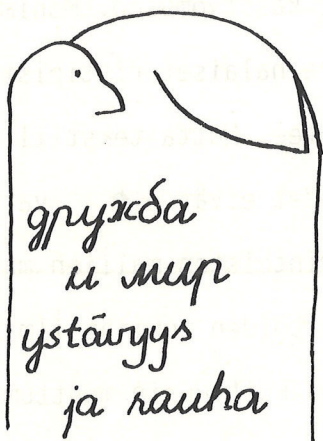 дружба
и мир
ystävyys
ja rauha